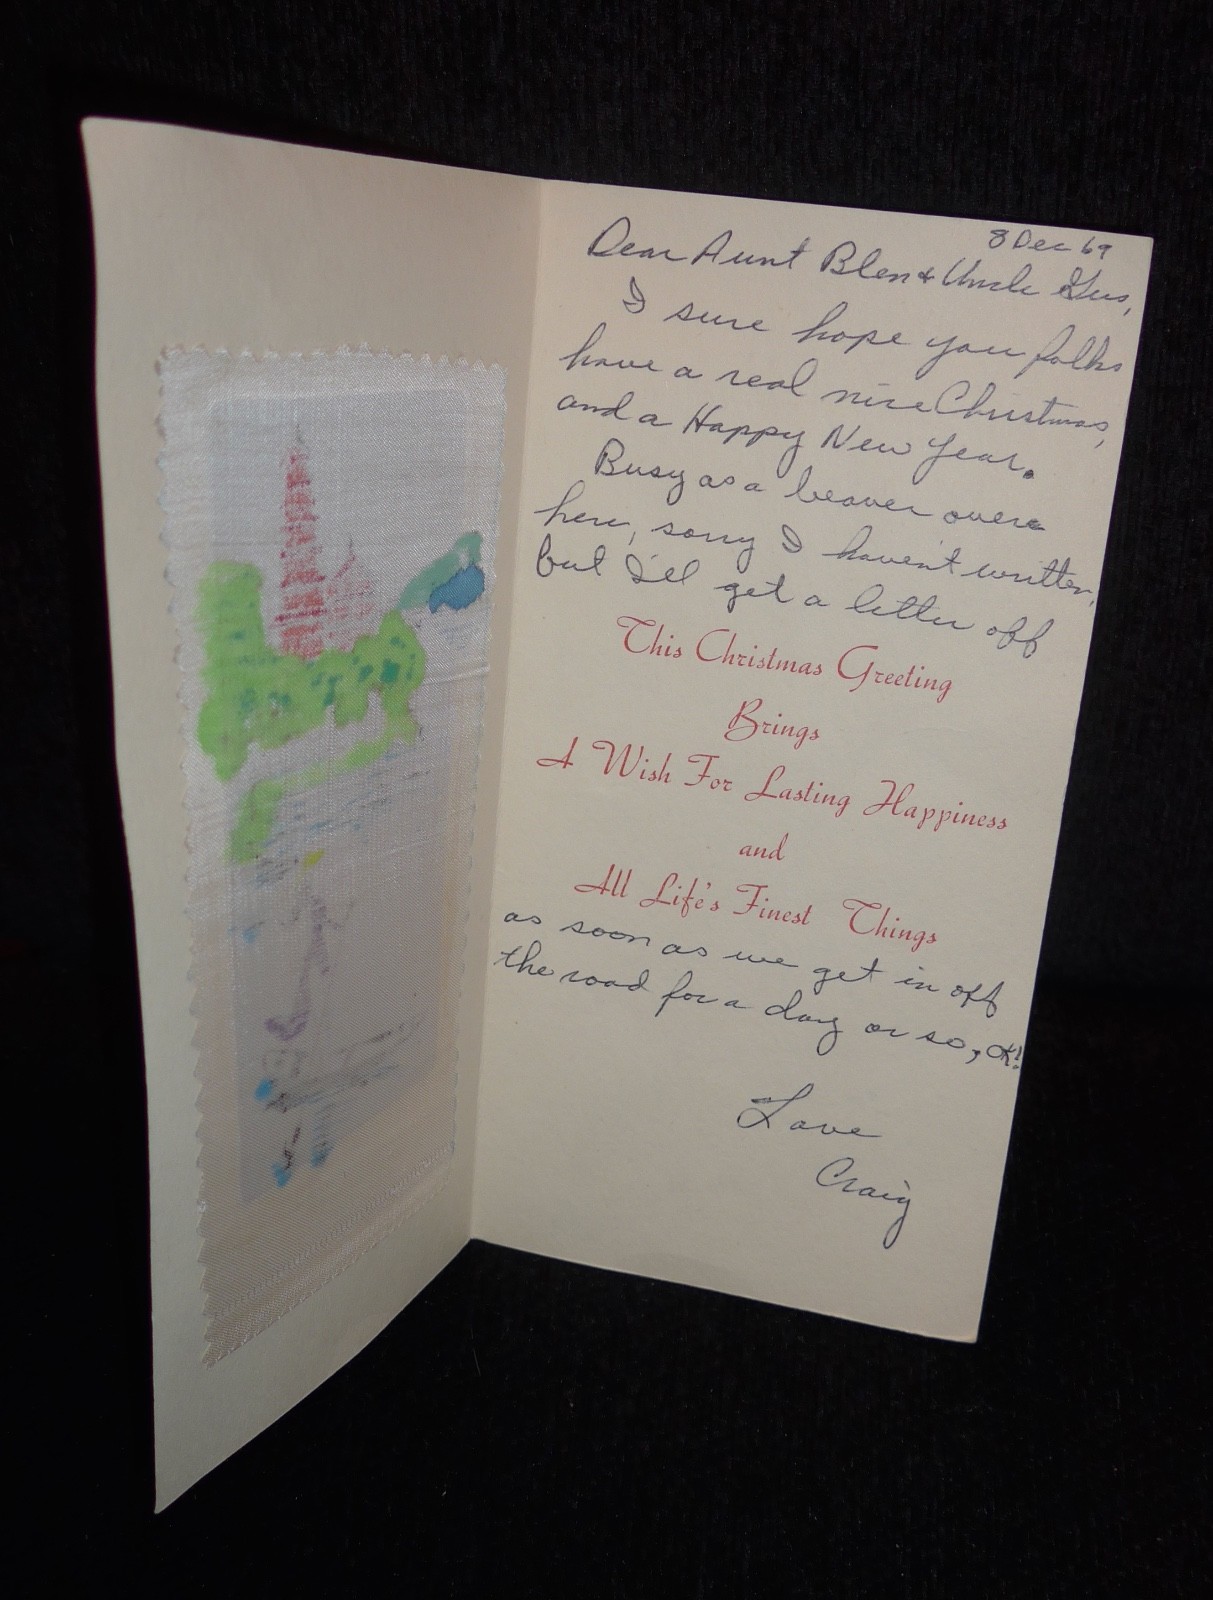 8 Dec 69
Dear Aunt Blen & Uncle Gus,
I sure hope you folks
have a real nice Christmas,
and a Happy New Year.
Busy as a beaver over
here, sorry I haven't written,
but I'll get a letter off
This Christmas Greeting
Brings
A Wish For Lasting Happiness
and
All Life's Finest Things
as soon as we get in off
the road for a day or so, OK!
Love
Craig